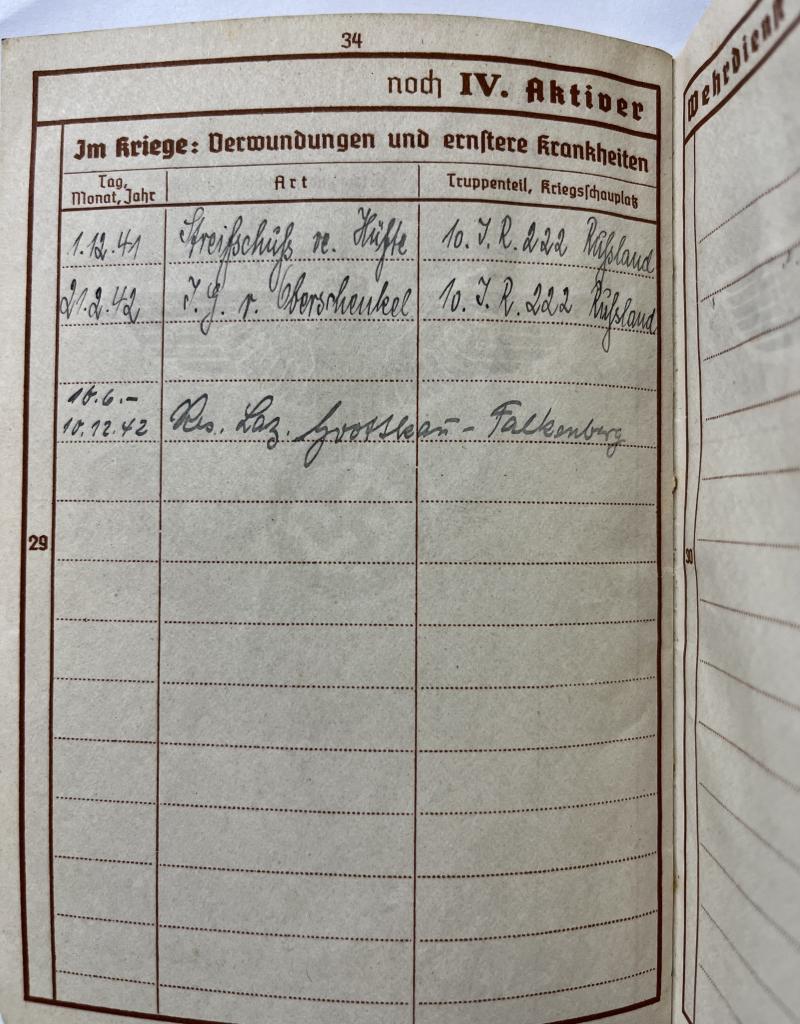 34
noch IV. Aktiver
Im Kriege: Verwundungen und ernstere Krankheiten
Tag, Monat, Jahr Art Truppenteil, Kriegsschauplatz
1.12.41 Streifschuß re. Hüfte 10. I. R. 222 Rußland
21.2.42 I. G. r. Oberschenkel 10. I. R. 222 Rußland
10.6.-
10.12.42 Res. Laz. Grottkau - Falkenberg
29
Wehrdienst
30